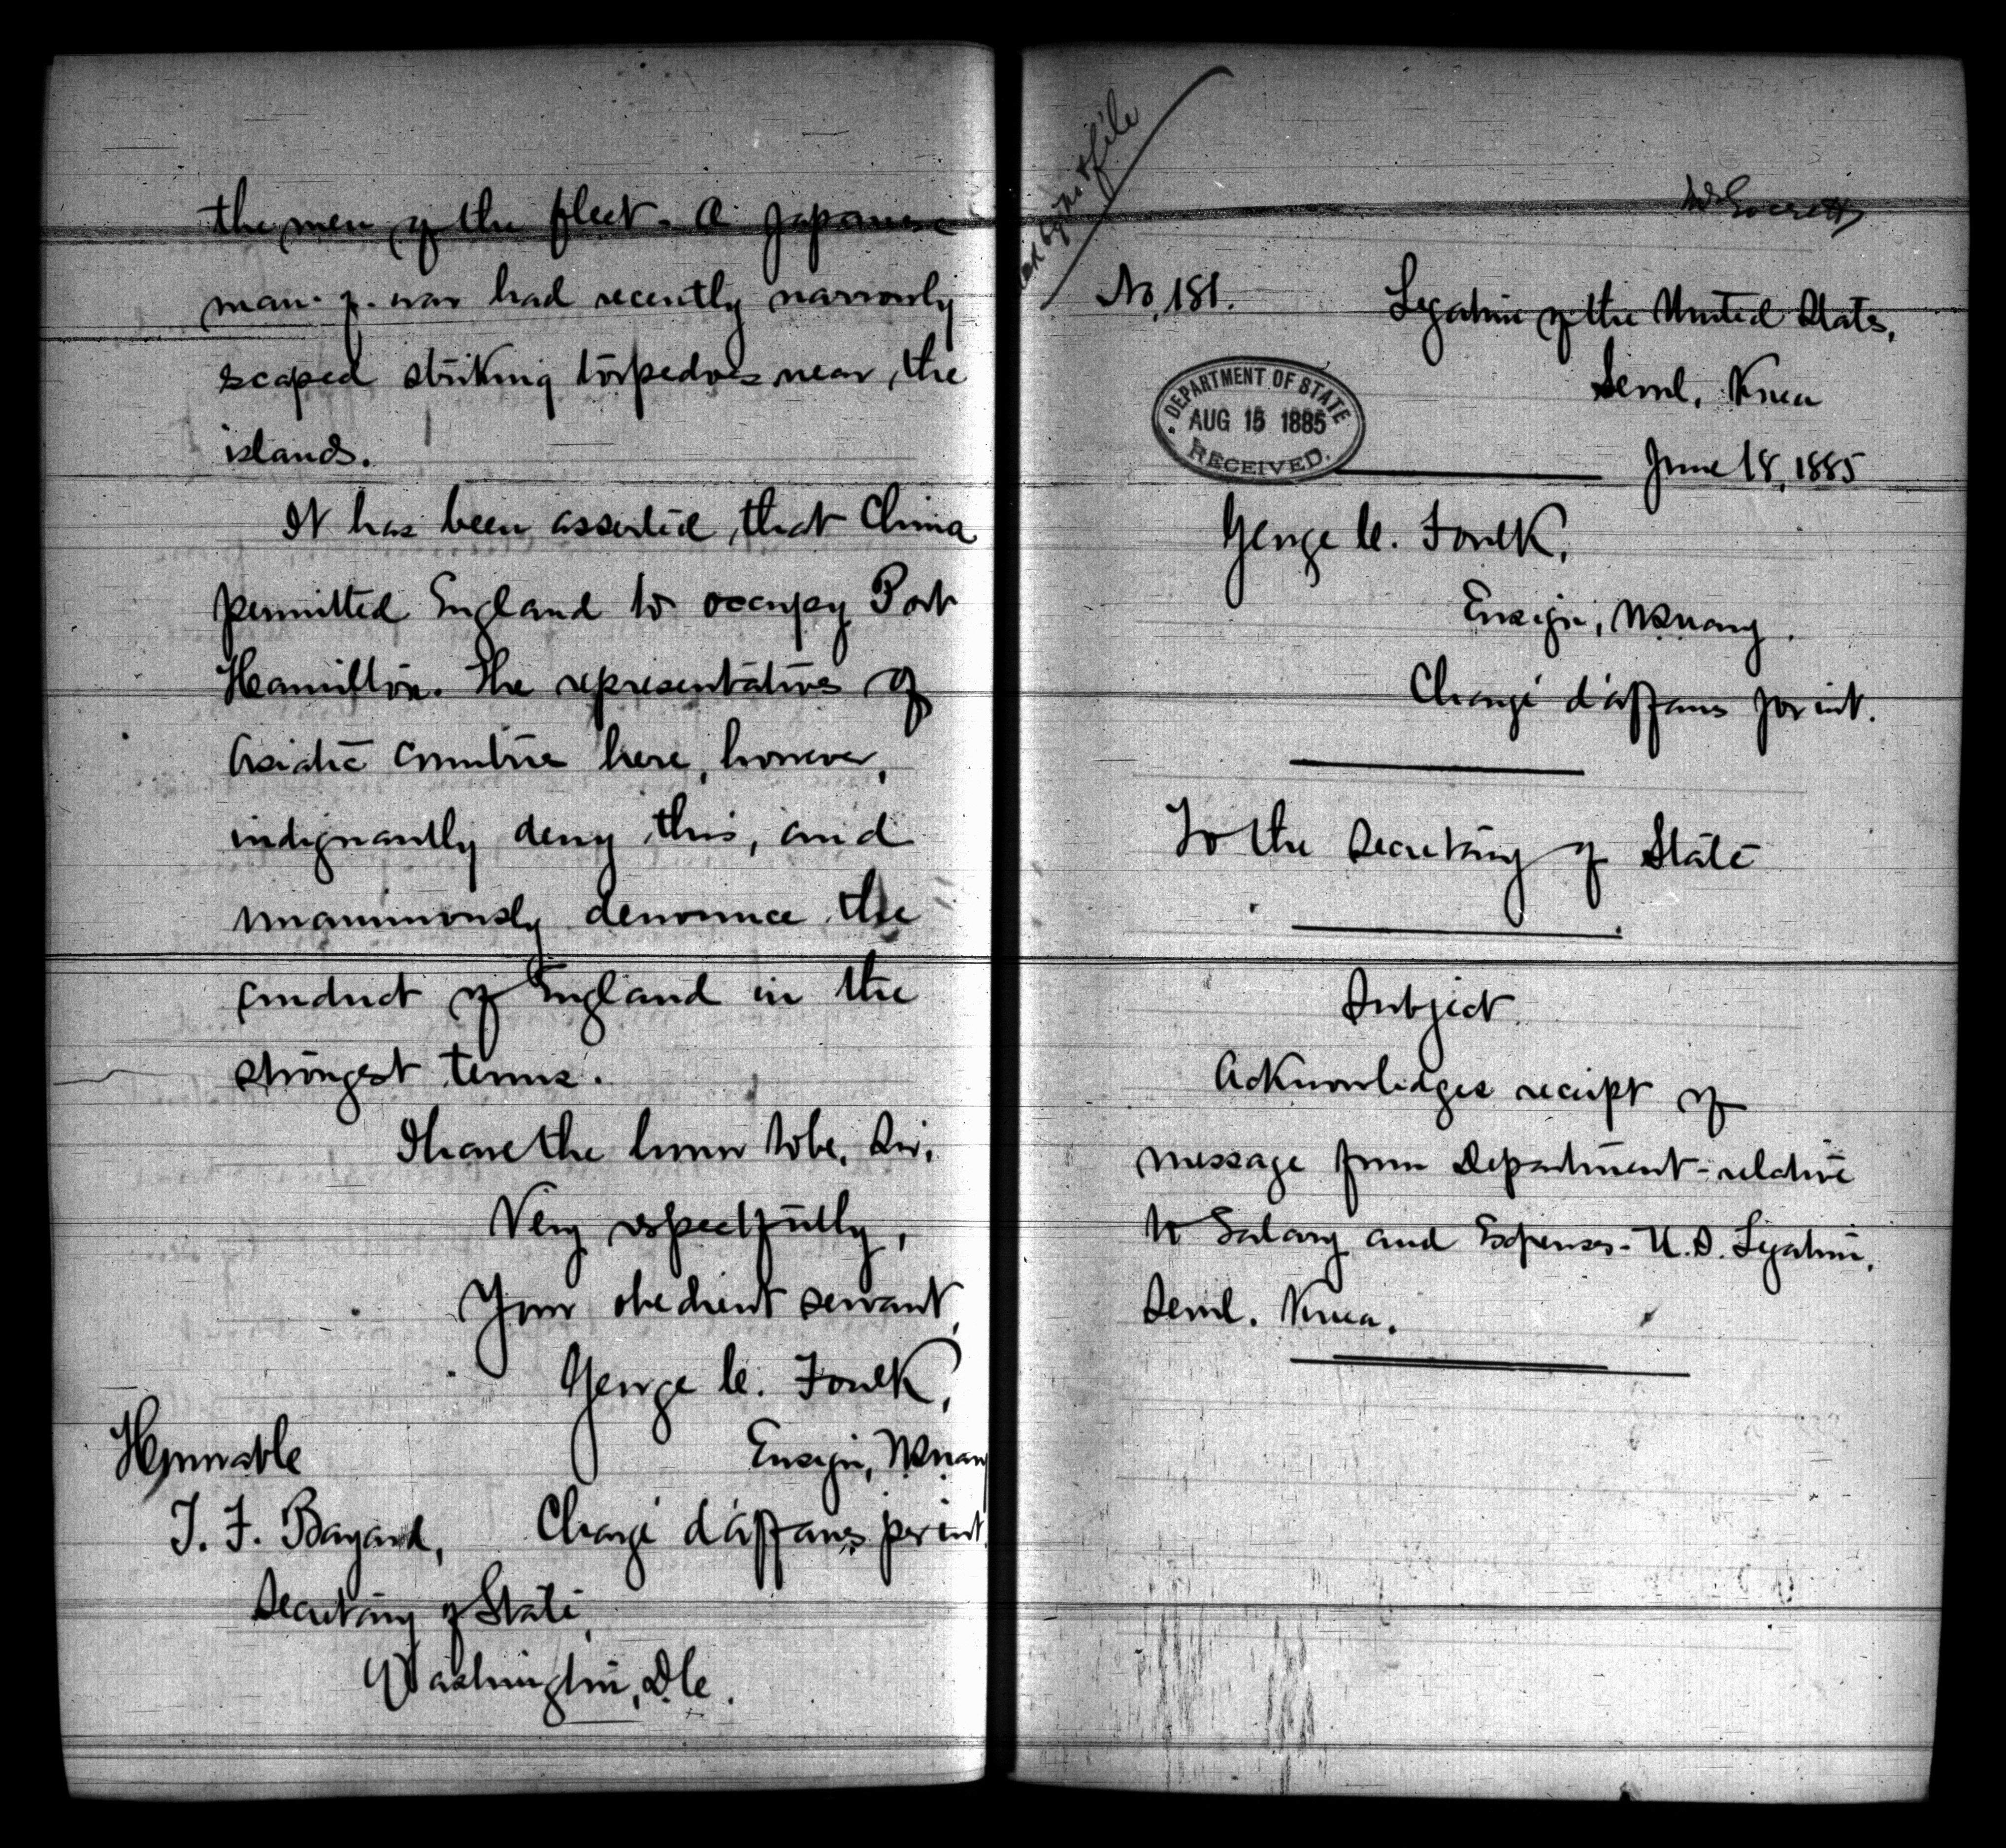 the men of the fleet. A Japanese
man. of. war had recently narrowly
scaped striking torpedoes near the
islands.
It has been asserted that China
permitted England to occupy Port
Hamilton. The representatives of
Asiatic countries here, however,
indignantly deny this, and
unanimously denounce the
conduct of England in the
strongest terms.
I have the honor to be, Sir,
Very respectfully,
Your obedient servant,
George C. Foulk,
Ensign, U.S. Navy
Chargé d'affaires per int.
Honorable
T. F. Bayard,
Secretary of State,
Washington, D.C.
& file
Mr Everett
No. 181.
Legation of the United States,
Seoul, Korea
June 18, 1885
DEPARTMENT OF STATE
AUG 15 1885
RECEIVED.
George C. Foulk,
Ensign, U.S. Navy.
Chargé d'affaires per int.
To the Secretary of State
Subject.
Acknowledges receipt of
message from Department - relative
to Salary and Expenses - U.S. Legation,
Seoul. Korea.